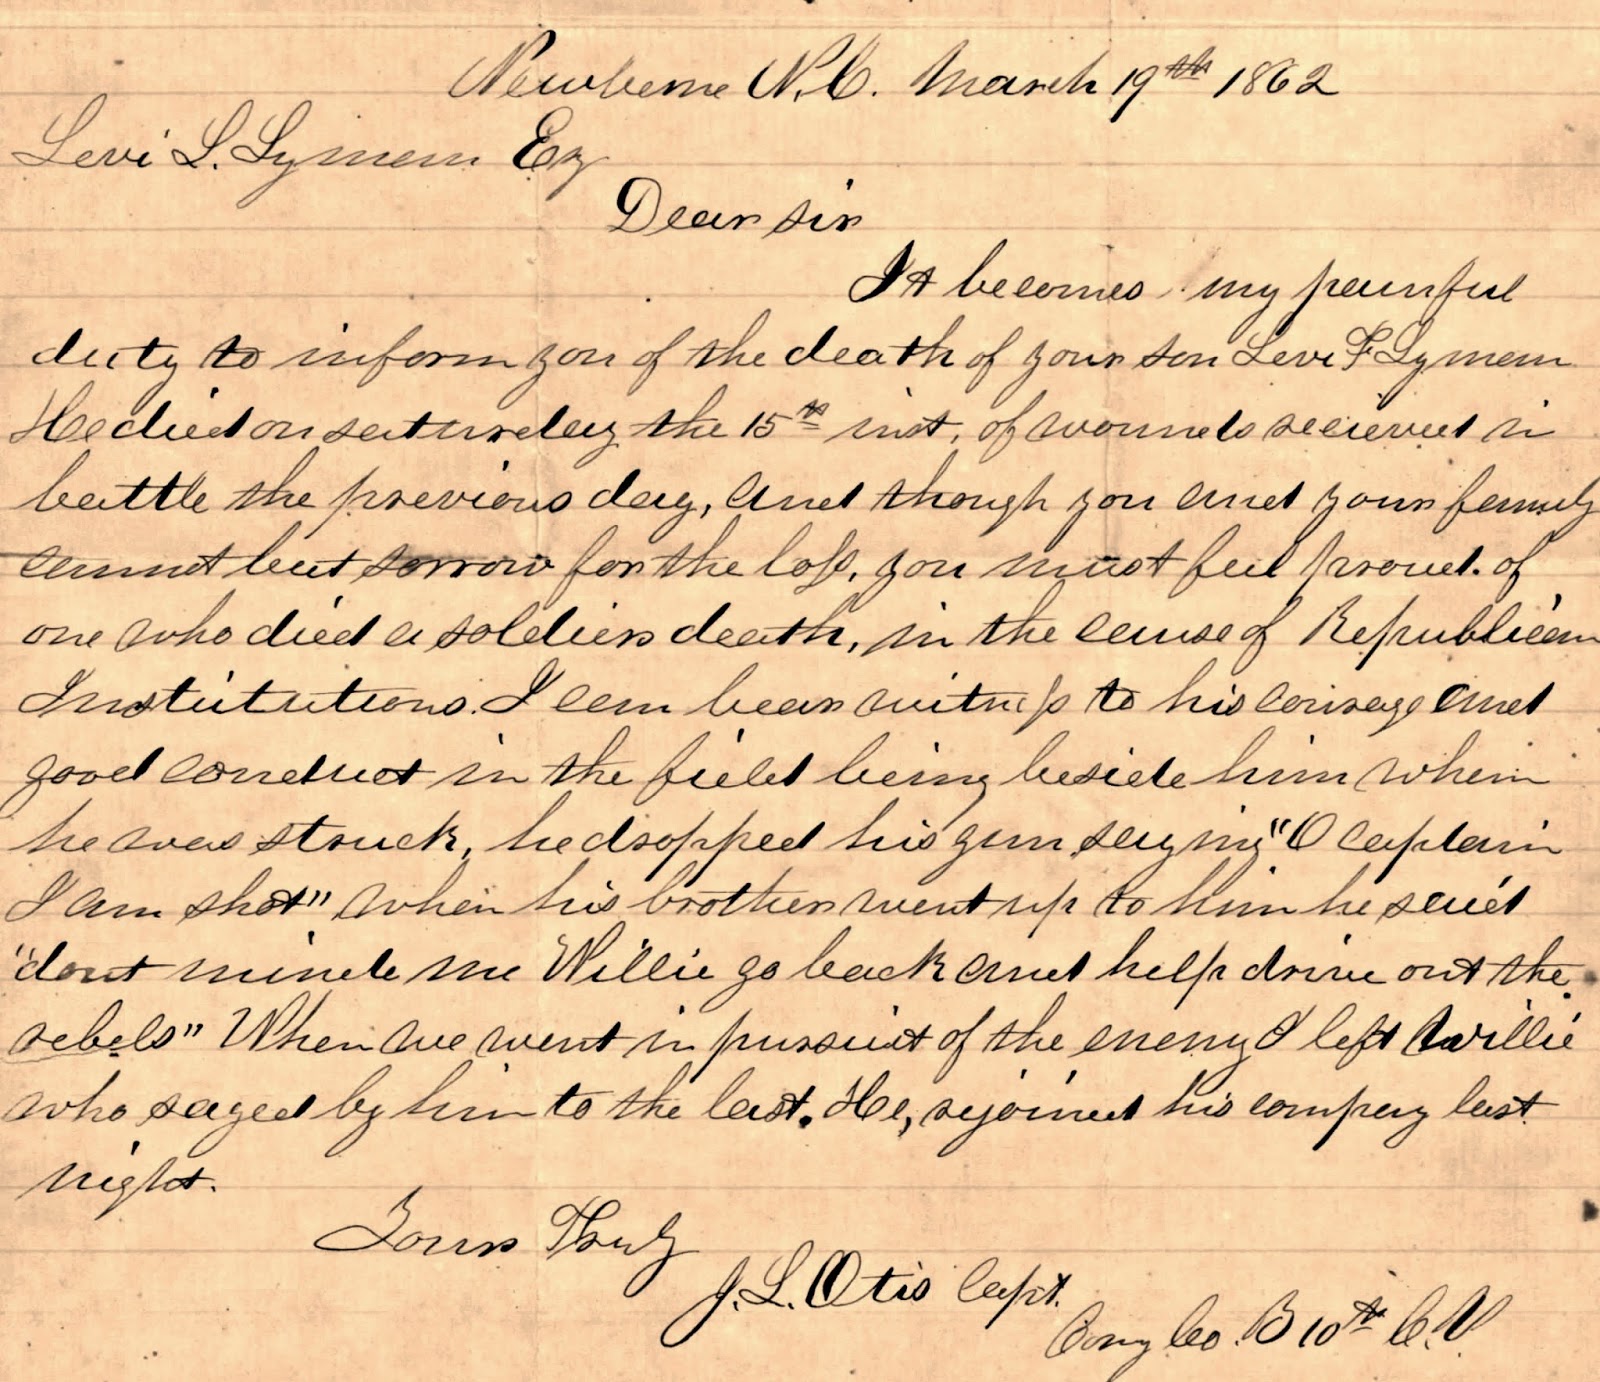 Newberne N.C. March 19th 1862
Levi L. Lyman Esq
Dear sir
It becomes my painful
duty to inform you of the death of your son Levi F Lyman
He died on saturday the 15th inst, of wounds recieved in
battle the previous day, and though you and your family
cannot but sorrow for the loss, you must feel proud. of
one who died a soldiers death, in the cause of Republican
Institutions. I can bear witness to his courage and
good conduct in the field being beside him when
he was struck, he dropped his gun saying "O captain
I am shot" when his brother went up to him he said
"dont minde me Willie go back and help drive out the
rebels" When we went in pursuit of the enemy I left Willie
who stayed by him to the last. He, rejoined his company last
night.
Yours Truly
J. L. Otis Capt.
Comg Co. B 10th C.V.